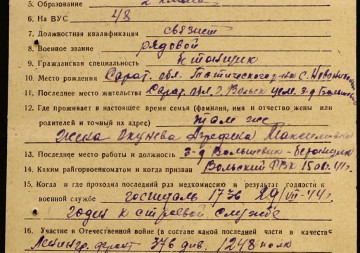 5. Образование 2 класса
6. На ВУС 48
7. Должностная квалификация связист
8. Военное звание рядовой
9. Гражданская специальность
10. Место рождения Сарат. обл.
11. Последнее место жительства Сарат. обл. г. Вольск цем. з-д Большевик
12. Где проживает в настоящее время семья (фамилия, имя и отчество жены или
родителей и точный их адрес) Там же
Жена Окунева Максимовна
13. Последнее место работы и должность З-д Большевик
14. Каким райгорвоенкоматом и когда призван Вольский РВК 15
15. Когда и где проходил последний раз медкомиссию и результат годности к
военной службе госпиталь 1736 29/VII-44г.
годен к строевой службе
16. Участие в Отечественной войне (в составе какой последней части и в качестве
Ленингр. фронт 376 див. 1248 полк